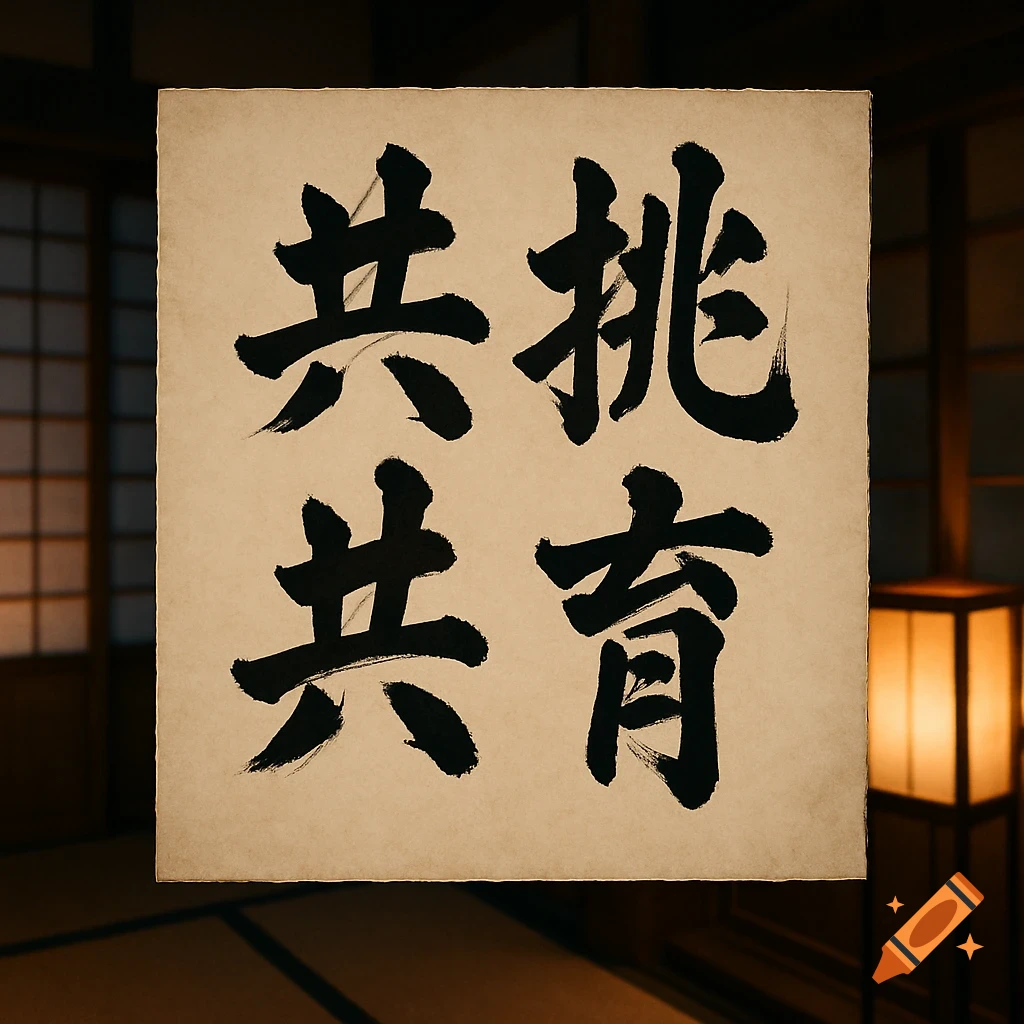 共挑
共育